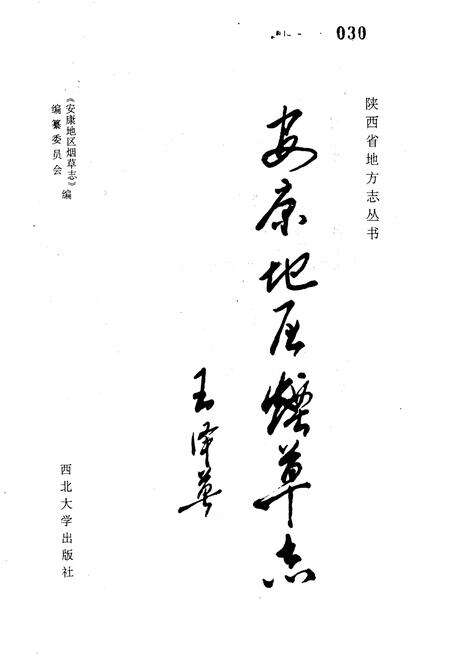 030
陕西省地方志丛书
安康地区煙草志
王泽英
《安康地区烟草志》编
编纂委员会
西北大学出版社